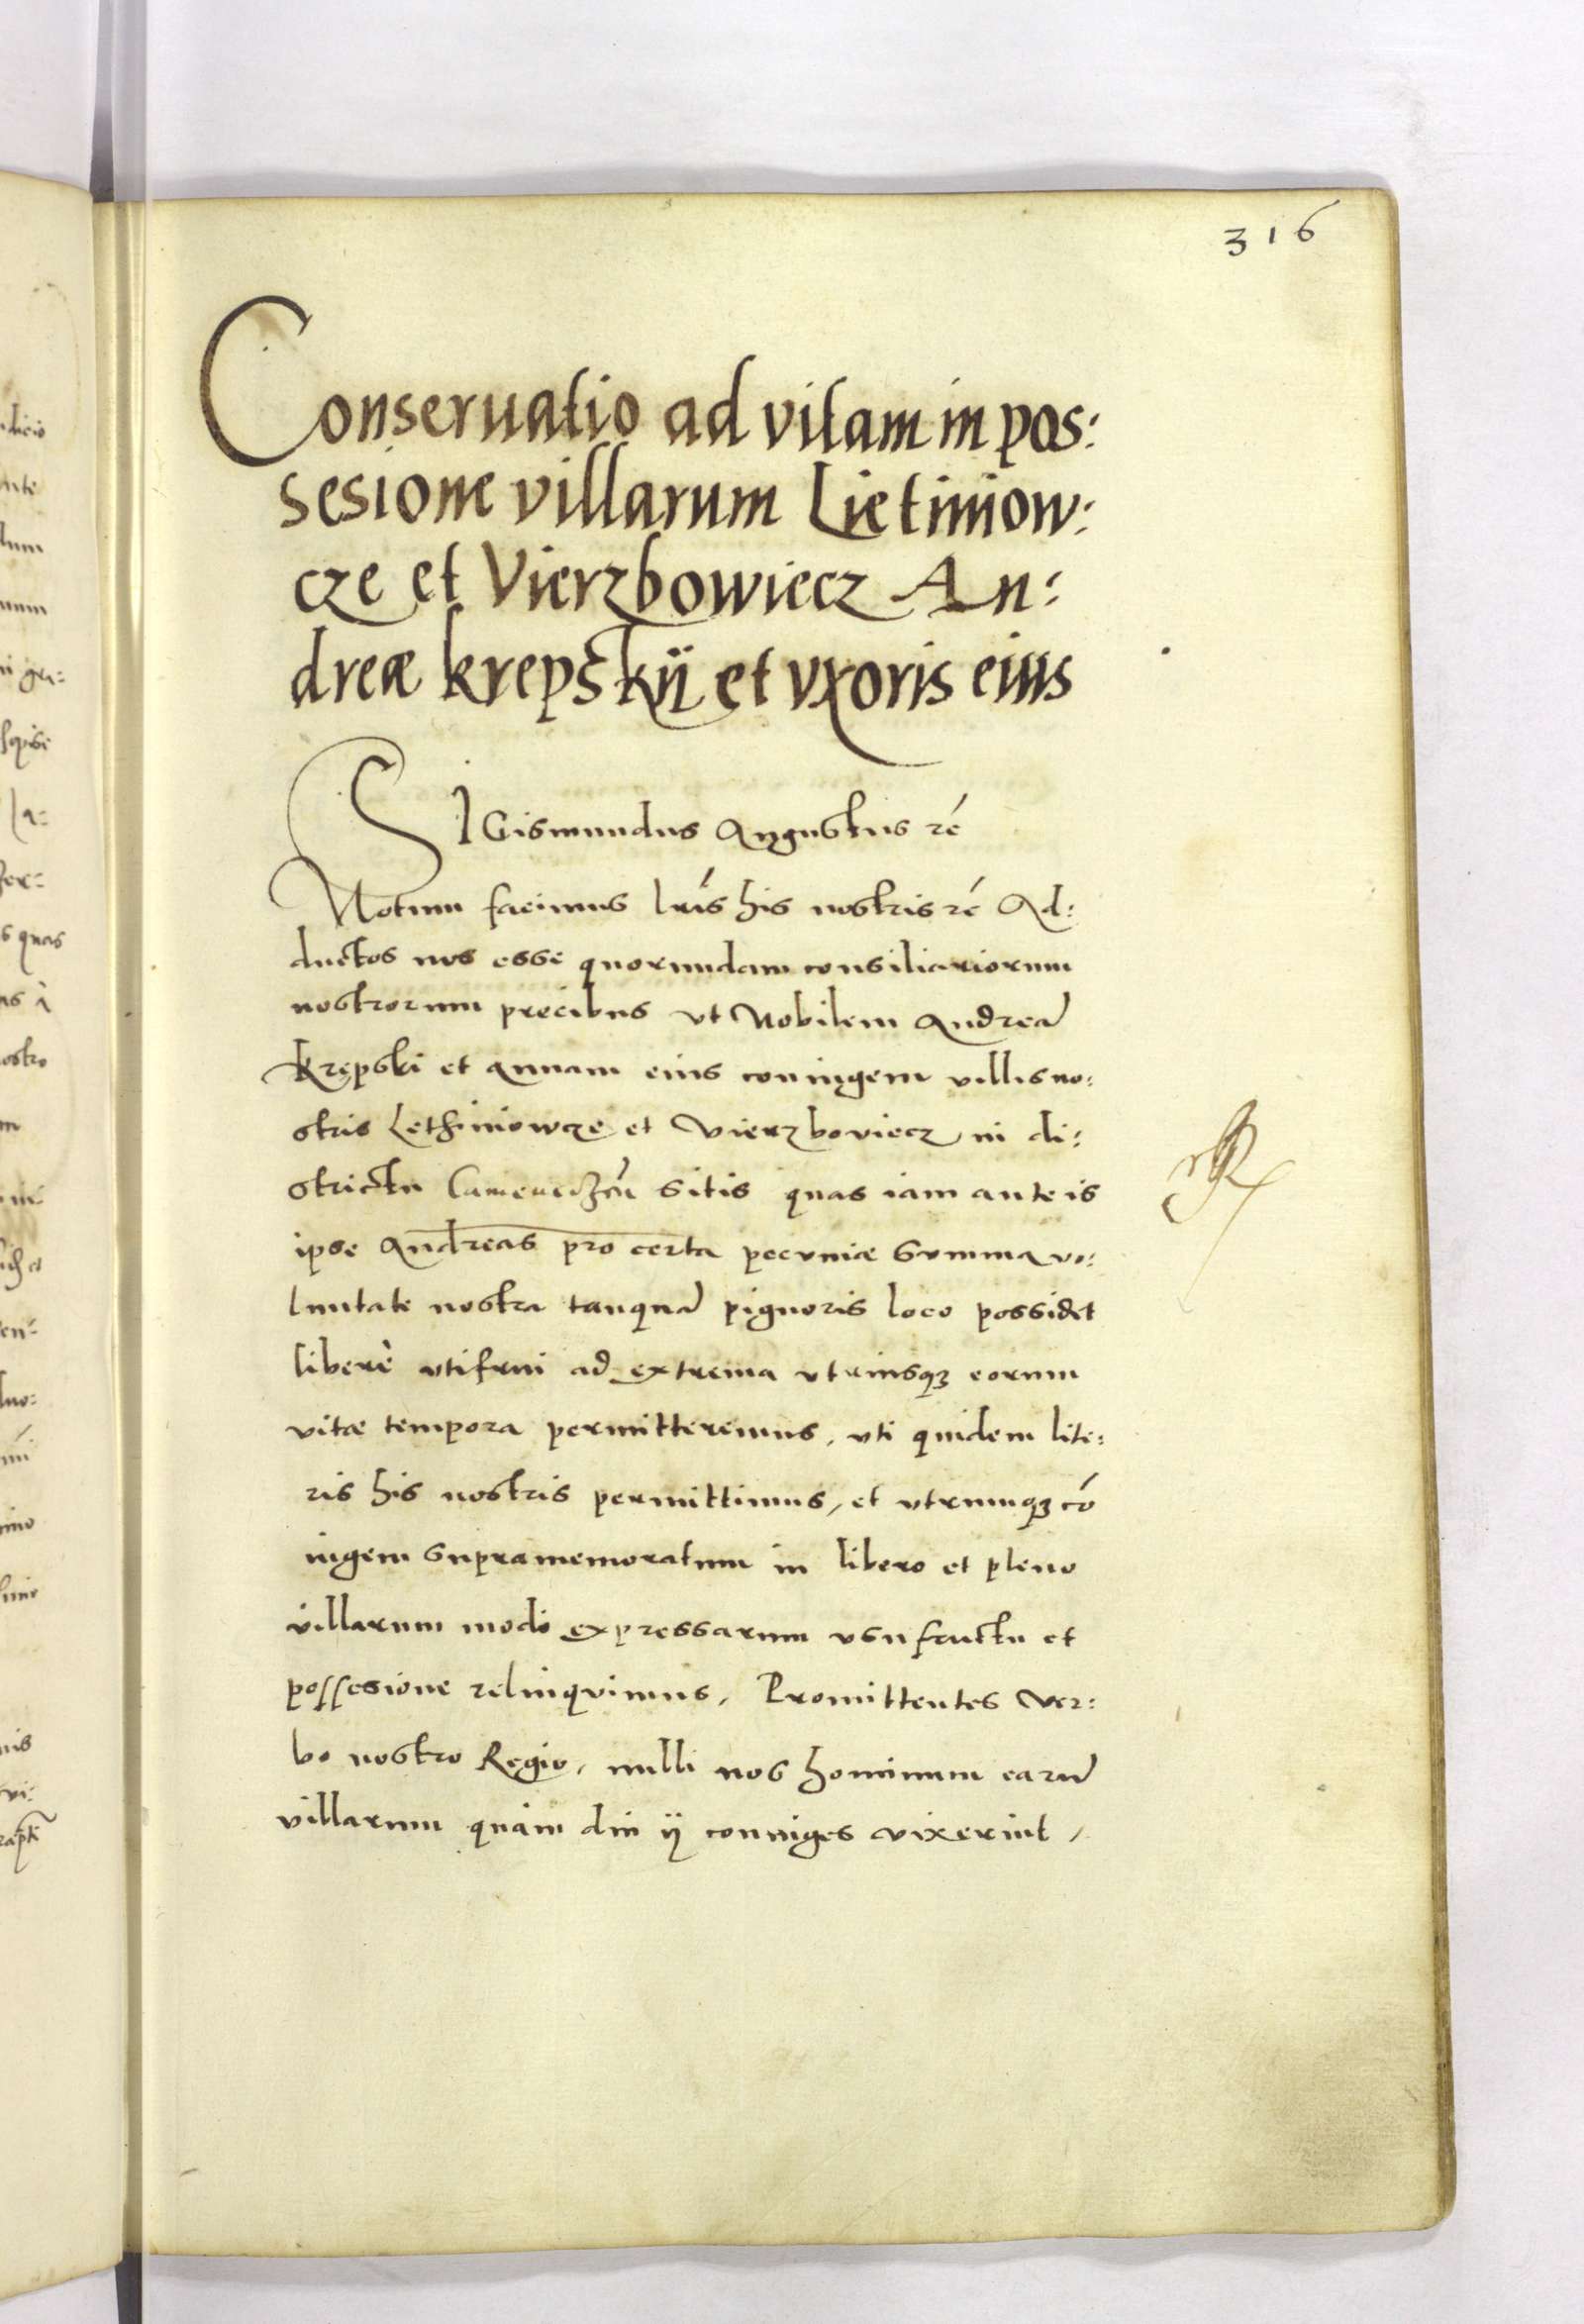 316
Conseruatio ad vitam in pos:
sesione villarum Lietiniow:
cze et Vierzbowiecz An:
dreæ krepskij et vxoris eius
SIGismundus Augustus rē
Notum facimus lrīs his nostris rē Ad:
ductos nos esse quorundam consiliariorum
nostrorum precibus vt Nobilem Andreā
Krępski et Annam eius coniugem villis no:
stris Lethiniowcze et Vierzboviecz in di:
strictu sitis quas iam ante is
ipse Andreas pro certa pecuniæ summa vo:
luntate nostra tanquā pignoris loco possidet
liberè vtifrui ad extrema vtriusqꝫ eorum
vitæ tempora permitteremus, vti quidem lite:
ris his nostris permittimus, et vtrumqꝫ cō
iugem supramemoratum in libero et pleno
villarum modò expressarum vsufructu et
possesione relinquimus, Promittentes Ver:
bo nostro Regio, nulli nos hominum earū
villarum quàm diu ij coniuges vixerint,